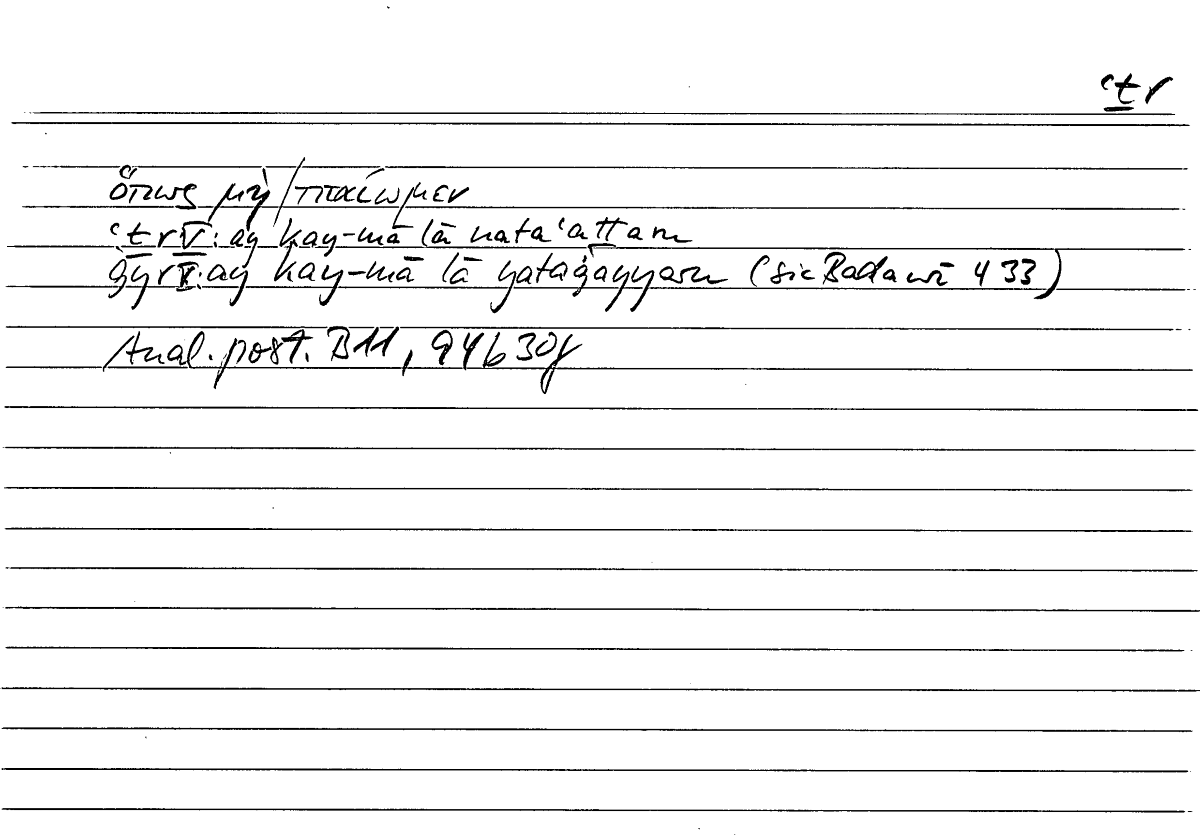 ʿṯr
ὅπως μὴ πταίωμεν
ʿṯr V: ay kay-mā lā nataʿaṯṯara
ġyr V: ay kay-mā lā yataġayyara (sic Badawī 433)
Anal. post. B11, 94b30f